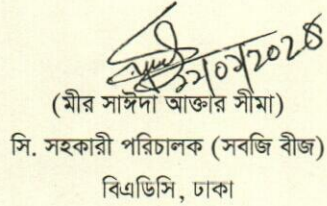 (মীর সাঈদা আক্তার সীমা)
সি. সহকারী পরিচালক (সবজি বীজ)
বিএডিসি, ঢাকা